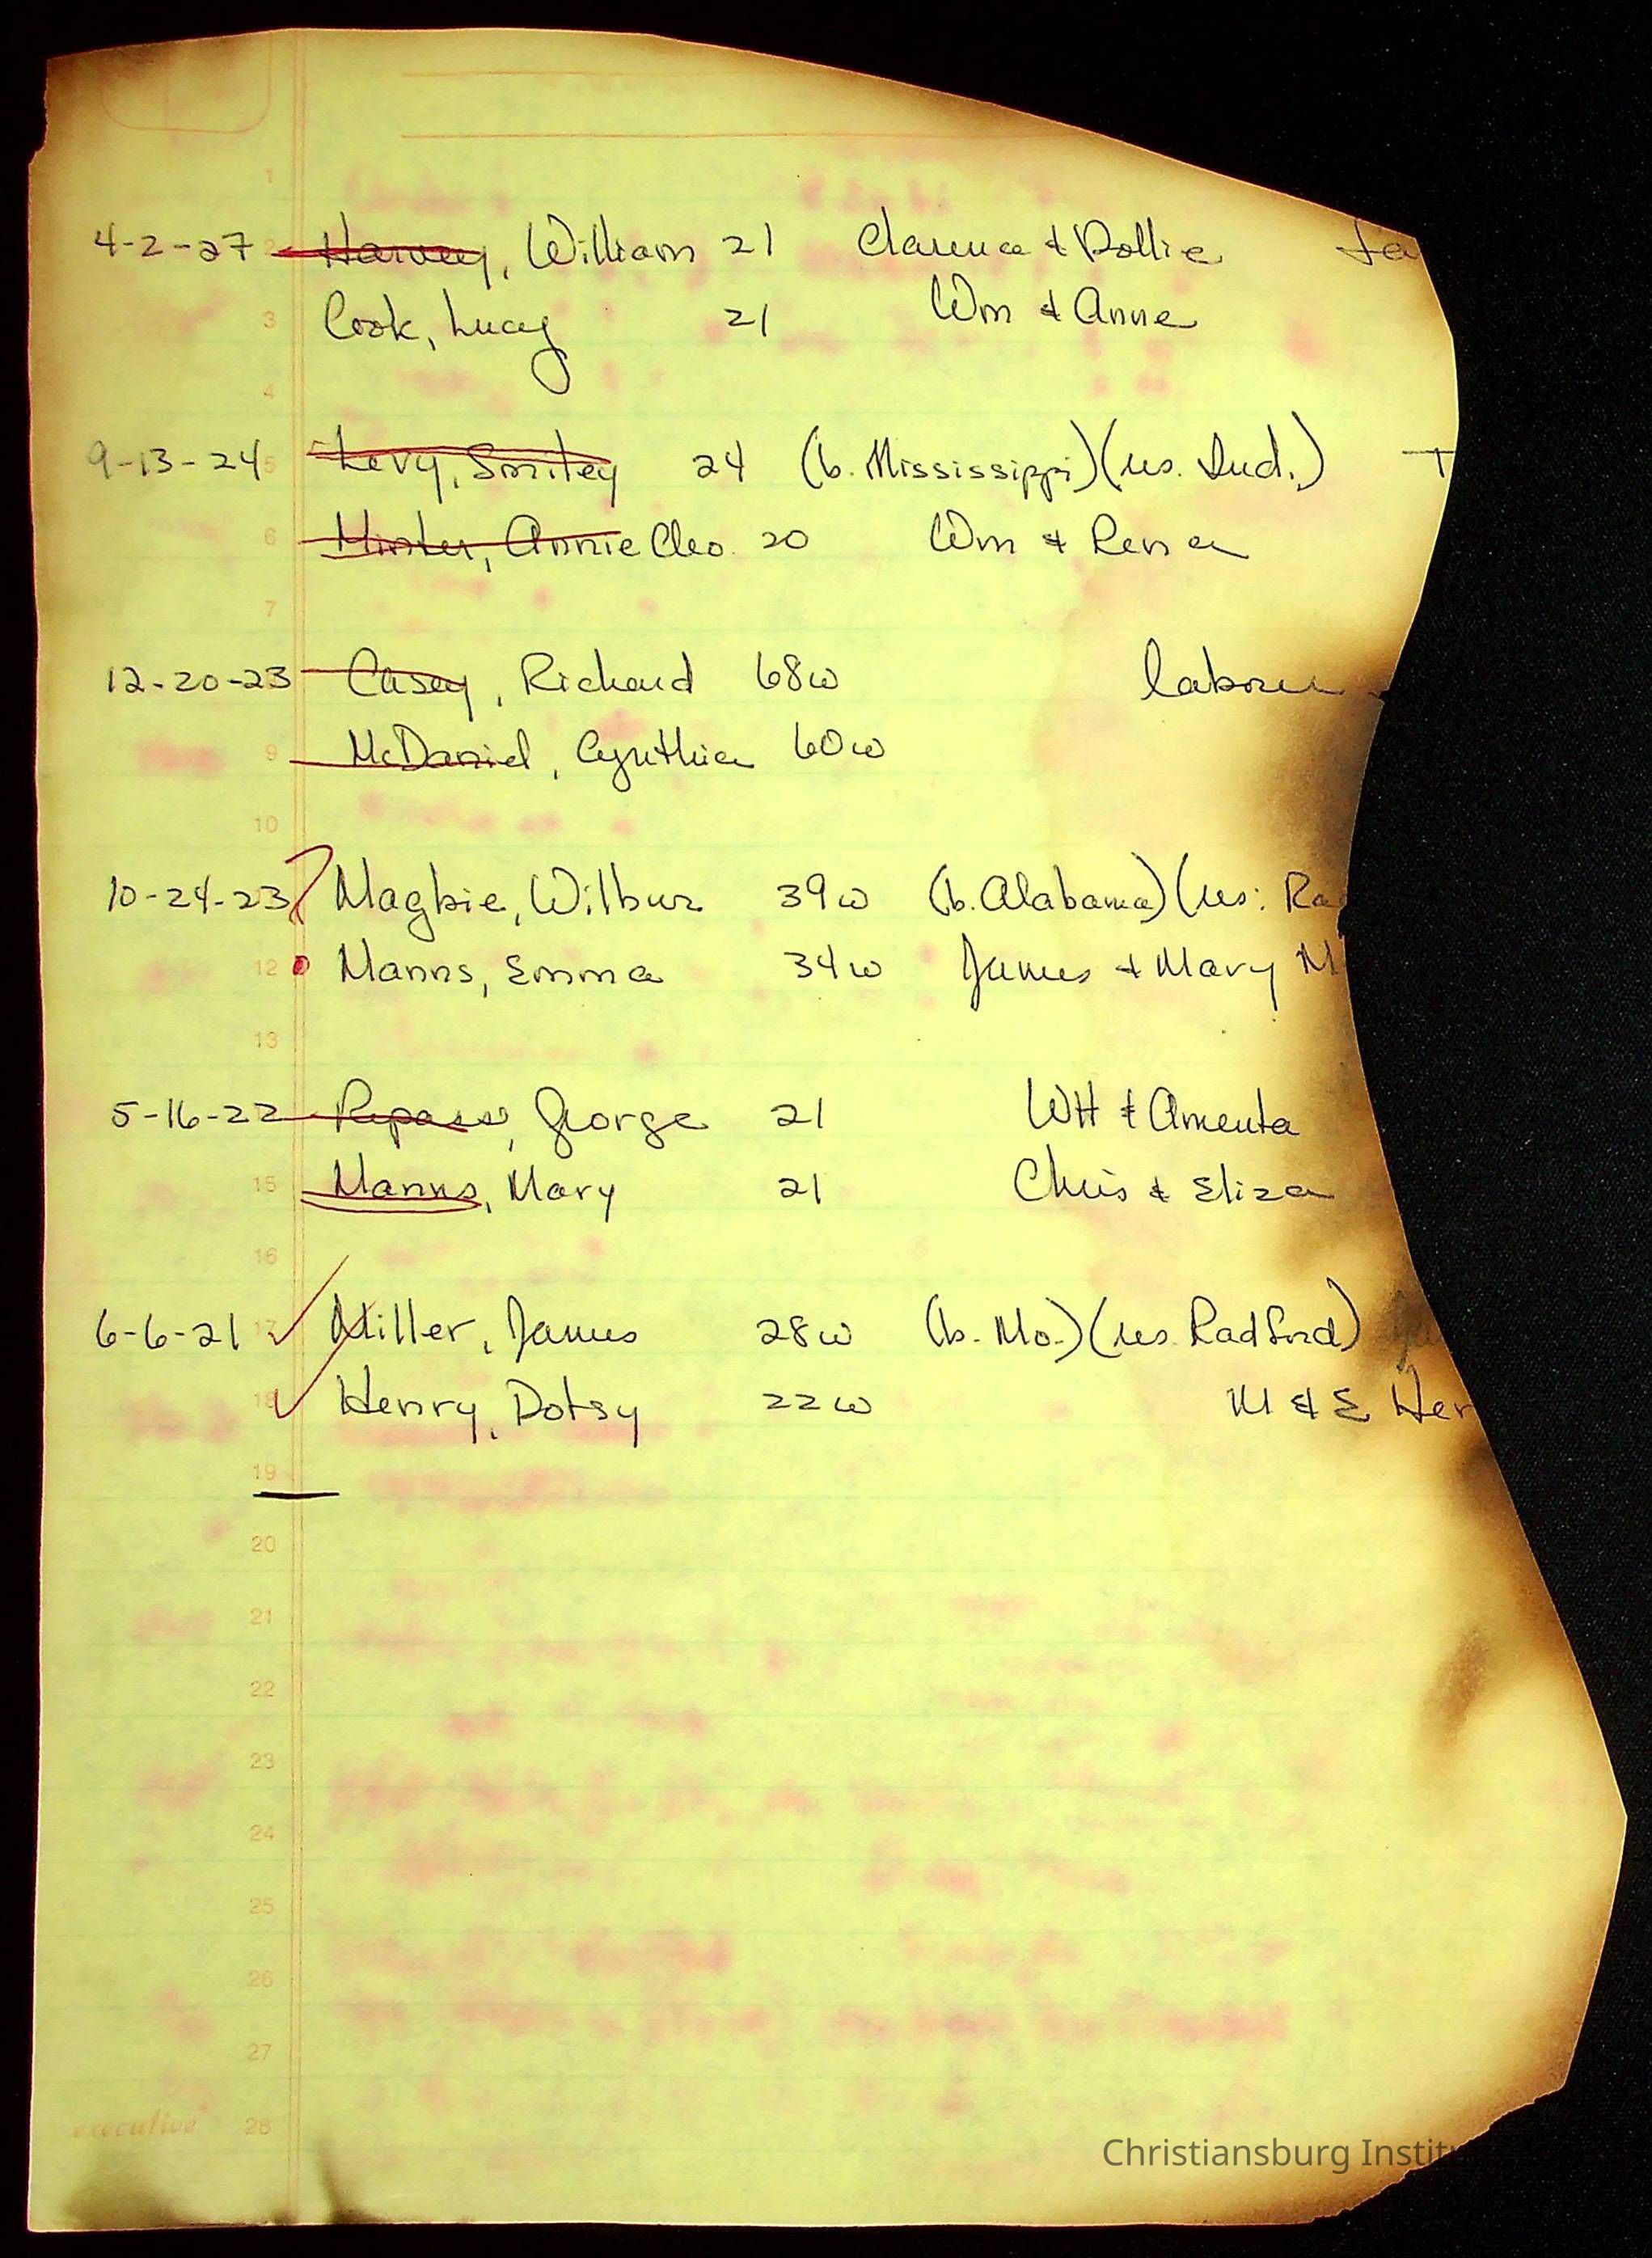 1
4-2-27 2 Harvey, William 21 Clarence & Dollie
3 Cook, Lucy 21 Wm & Anne
4
9-13-24 5 Levy, Smiley 24 (b. Mississippi) (res. Ind.) T
6 Minter, Annie Cleo. 20 Wm & Rena
7
12-20-23 Casey, Richard 68w laborer
9 McDaniel, Cynthia 60w
10
10-24-23 Magbie, Wilbur 39w (b. Alabama) (res: Ra
12 Manns, Emma 34w James & Mary M
13
5-16-22 Repass, George 21 WH & Amenta
15 Manns, Mary 21 Chris & Eliza
16
6-6-21 17 Miller, James 28w (b. Mo.) (res. Radford)
18 Henry, Dotsy 22w M & E Hen
19
20
21
22
23
24
25
26
27
executive 28
Christiansburg Institu